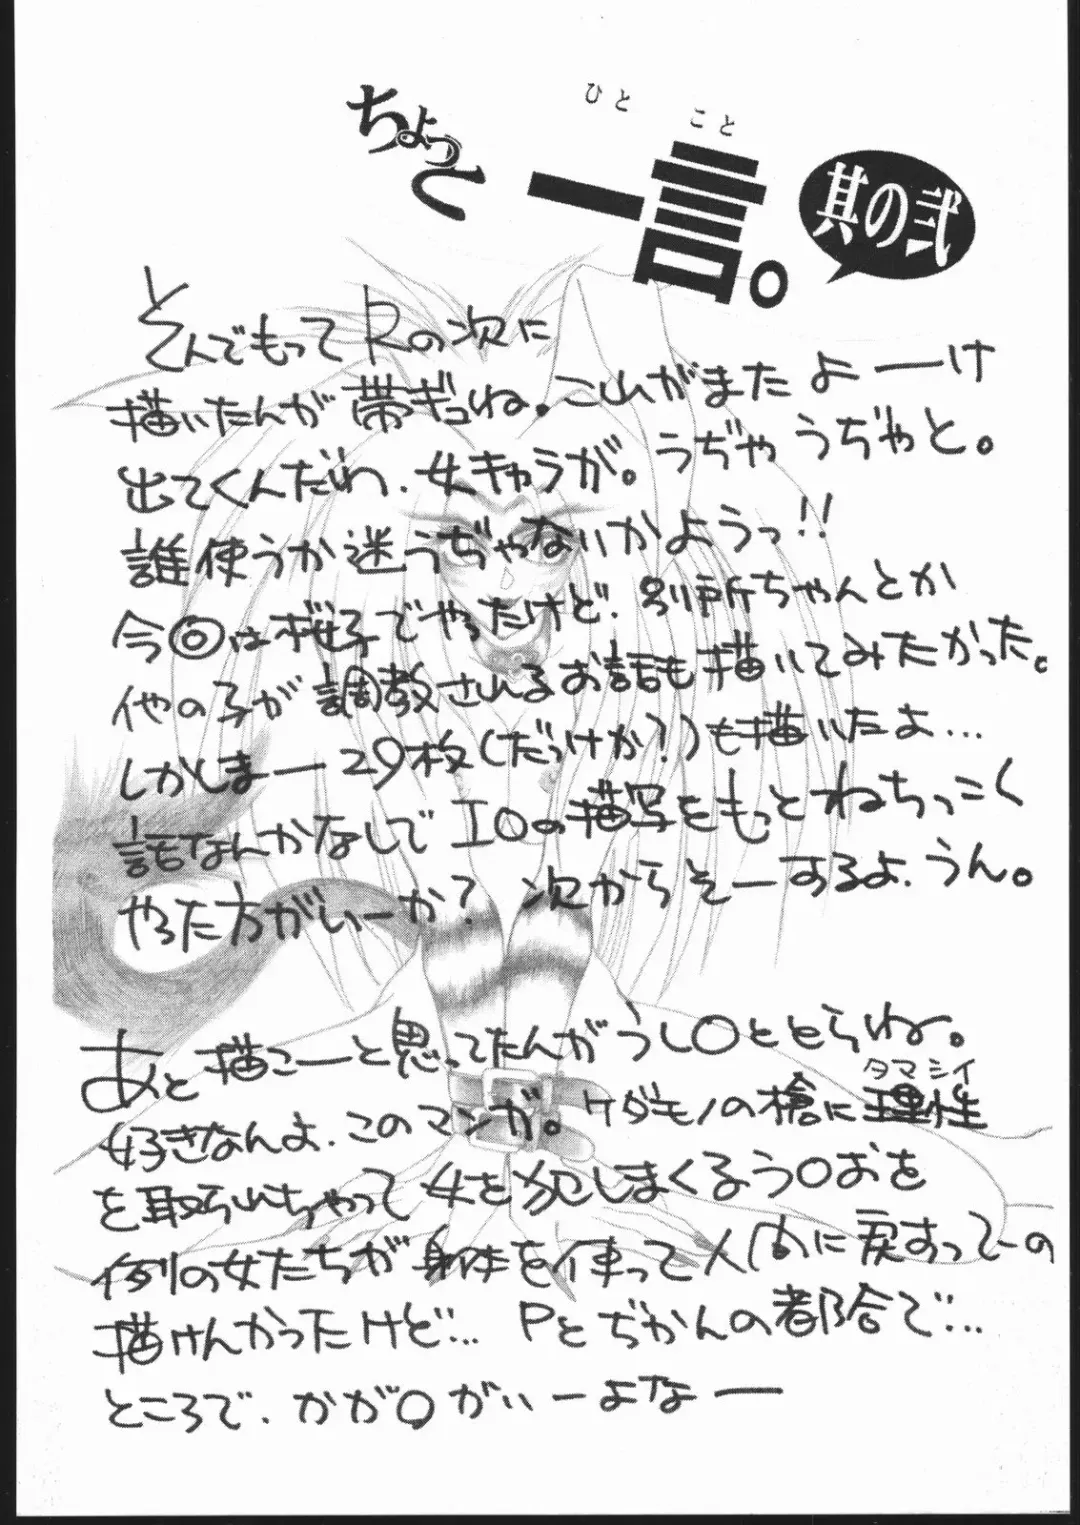 ちょっと
ひと こと
一言。
其の弐
とんでもって Rの次に
描いたんが帯ギュね。これがまた よーーけ
出てくんだわ、女キャラが。うぢゃ うぢゃと。
誰使うか迷うぢゃないかようっ!!
今◎は桜子でやったけど、別所ちゃんとか
他の子が調教されるお話も描いてみたかった。
しかしまー29枚(だっけか?)も描いたよ…
話なんかなしでIOの描写をもっとねちっこく
やった方がいーか? 次からそーするよ、うん。
あと描こーーと思ってたんがうし〇ととらね。
好きなんよ、このマンガ。ケダモノの槍に理性
タマシイ
を取られちゃって女を犯しまくるう〇おを
例の女たちが身体を使って人間に戻すってーの
描けんかったけど… Pとぢかんの都合で…
ところで、かが〇がいーよなー